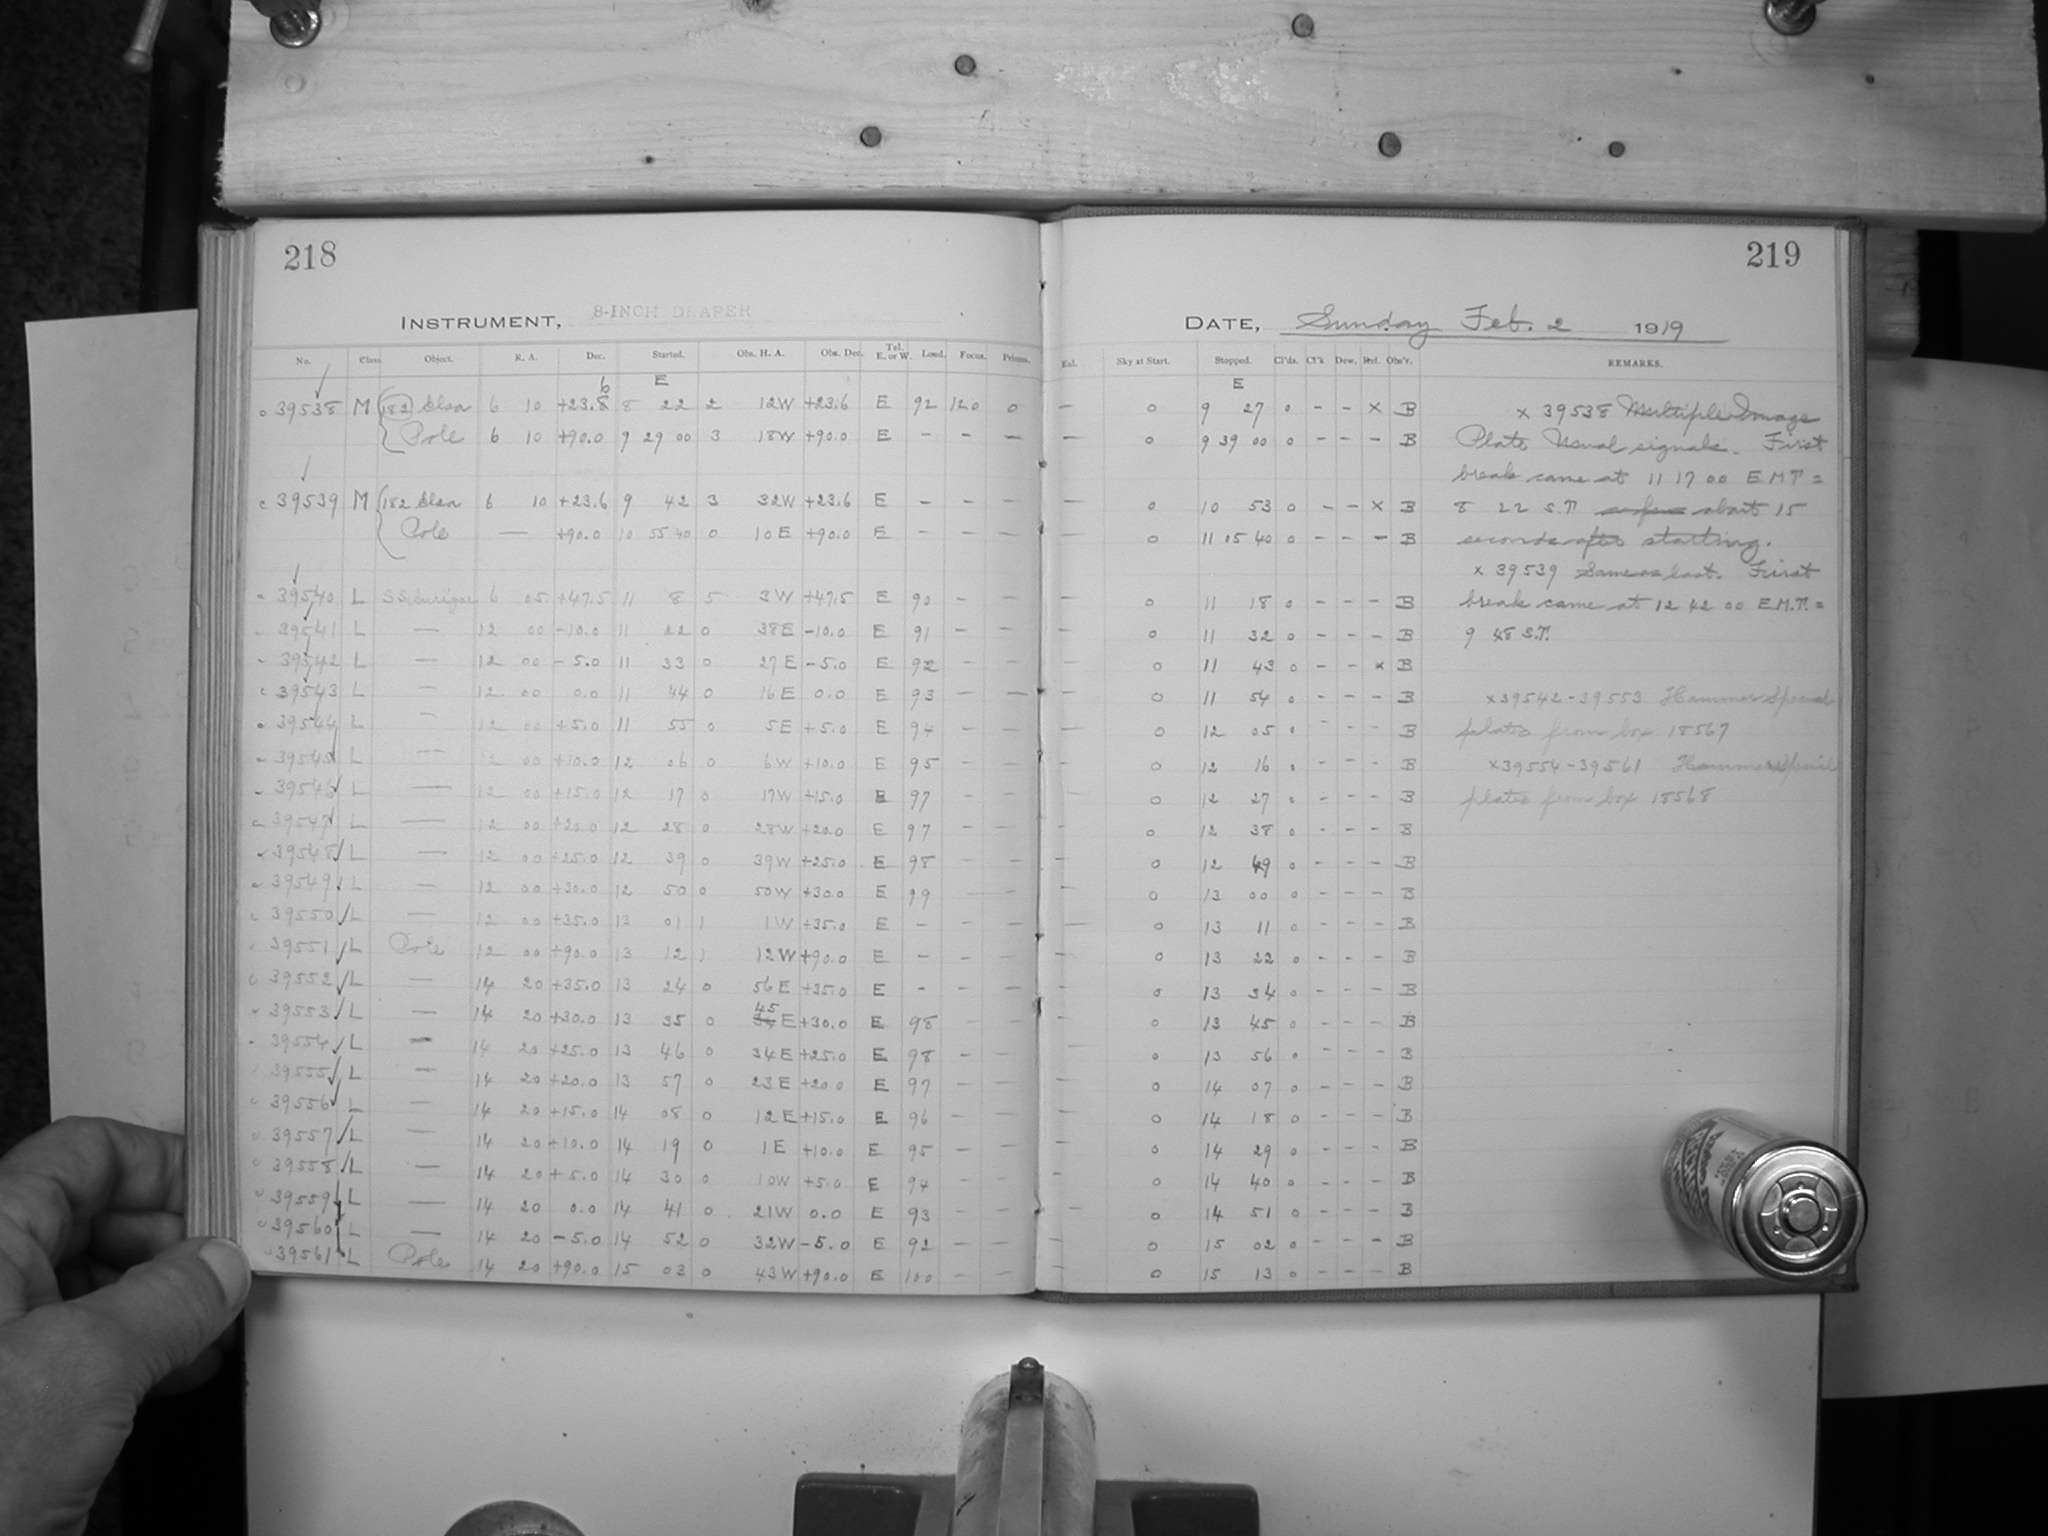 218
INSTRUMENT, 8-INCH DRAPER
No. Class. Object. R. A. Dec. Started. Obs. H. A. Obs. Dec. Tel. E. or W. Load. Focus. Prisms.
6 E
39538 M 182 Elsa 6 10 +23.8 8 22 2 12W +23.6 E 92 120 0
Pole 6 10 +90.0 9 29 00 3 18W +90.0 E - - -
39539 M 182 Elsa 6 10 +23.6 9 42 3 32W +23.6 E - - -
Pole — +90.0 10 55 40 0 10E +90.0 E - - -
39540 L SS Aurigae 6 05 +47.5 11 8 5 3W +47.5 E 90 - -
39541 L — 12 00 -10.0 11 22 0 38E -10.0 E 91 - -
39542 L — 12 00 -5.0 11 33 0 27E -5.0 E 92 - -
39543 L — 12 00 0.0 11 44 0 16E 0.0 E 93 - -
39544 L — 12 00 +5.0 11 55 0 5E +5.0 E 94 - -
39545 L — 12 00 +10.0 12 06 0 6W +10.0 E 95 - -
39546 L — 12 00 +15.0 12 17 0 17W +15.0 E 97 - -
39547 L — 12 00 +20.0 12 28 0 28W +20.0 E 97 - -
39548 L — 12 00 +25.0 12 39 0 39W +25.0 E 98 - -
39549 L — 12 00 +30.0 12 50 0 50W +30.0 E 99 - -
39550 L — 12 00 +35.0 13 01 1 1W +35.0 E - - -
39551 L Pole 12 00 +90.0 13 12 1 12W +90.0 E - - -
39552 L — 14 20 +35.0 13 24 0 56E +35.0 E - - -
39553 L — 14 20 +30.0 13 35 0 45 E +30.0 E 98 - -
39554 L — 14 20 +25.0 13 46 0 34E +25.0 E 98 - -
39555 L — 14 20 +20.0 13 57 0 23E +20.0 E 97 - -
39556 L — 14 20 +15.0 14 08 0 12E +15.0 E 96 - -
39557 L — 14 20 +10.0 14 19 0 1E +10.0 E 95 - -
39558 L — 14 20 +5.0 14 30 0 10W +5.0 E 94 - -
39559 L — 14 20 0.0 14 41 0 21W 0.0 E 93 - -
39560 L — 14 20 -5.0 14 52 0 32W -5.0 E 92 - -
39561 L Pole 14 20 +90.0 15 03 0 43W +90.0 E 100 - -
219
DATE, Sunday Feb. 2 1919
Sky at Start. Stopped. Cl'ds. Cl'k Dew. Ref. Obs'r. REMARKS.
E
- 0 9 27 0 - - x B x 39538 Multiple Image
- 0 9 39 00 0 - - - B Plate Usual signals. First
break came at 11 17 00 E.M.T. =
- 0 10 53 0 - - x B 8 22 S.T. about 15
- 0 11 05 40 0 - - - B seconds after starting.
x 39539 Same as last. First
- 0 11 18 0 - - - B break came at 12 42 00 E.M.T. =
- 0 11 32 0 - - - B 9 48 S.T.
- 0 11 43 0 - - x B
- 0 11 54 0 - - - B x39542-39553 Hammer Special
- 0 12 05 0 - - - B plates from box 18567
- 0 12 16 0 - - - B x39554-39561 Hammer Special
- 0 12 27 0 - - - B plates from box 18568
- 0 12 38 0 - - - B
- 0 12 49 0 - - - B
- 0 13 00 0 - - - B
- 0 13 11 0 - - - B
- 0 13 22 0 - - - B
- 0 13 34 0 - - - B
- 0 13 45 0 - - - B
- 0 13 56 0 - - - B
- 0 14 07 0 - - - B
- 0 14 18 0 - - - B
- 0 14 29 0 - - - B
- 0 14 40 0 - - - B
- 0 14 51 0 - - - B
- 0 15 02 0 - - - B
- 0 15 13 0 - - - B